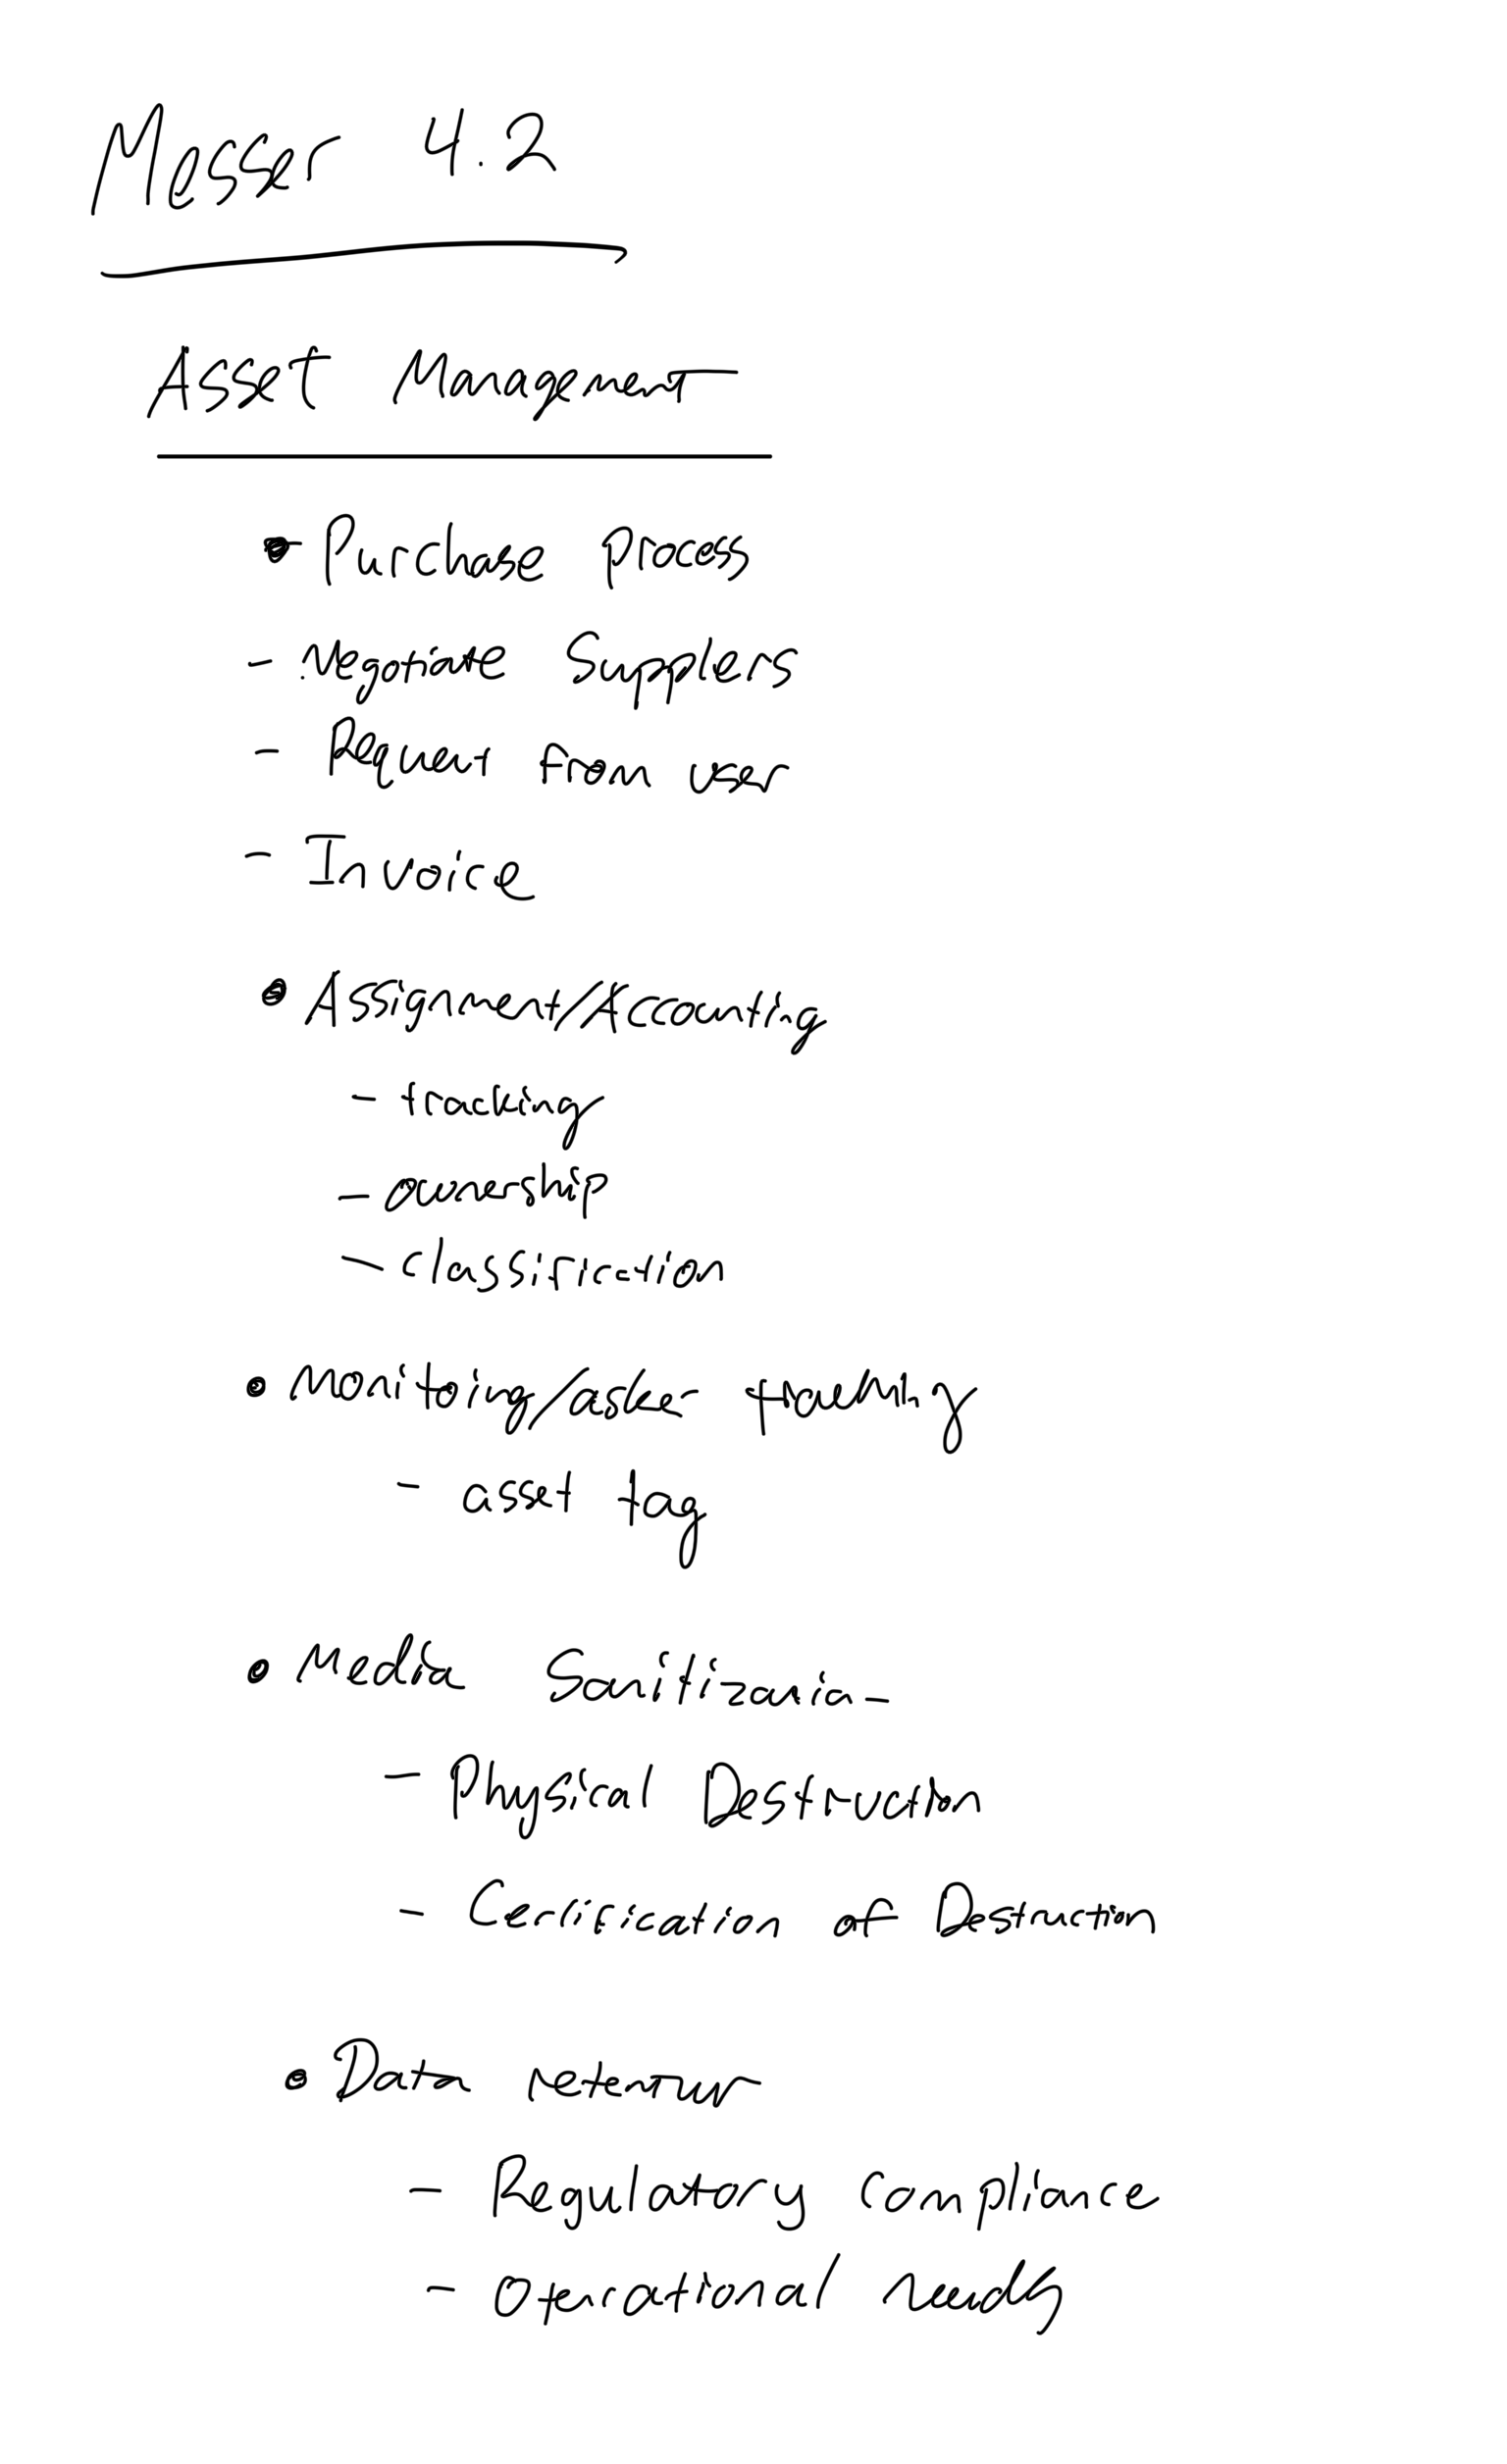 Messer 4.2
Asset Management
• Purchase process
- Negotiate Suppliers
- Request from user
- Invoice
• Assignment/Accounting
- tracking
- ownership
- classification
• Monitoring/asset tracking
- asset tag
• Media Sanitization
- Physical Destruction
- Certification of Destruction
• Data retention
- Regulatory compliance
- Operational needs